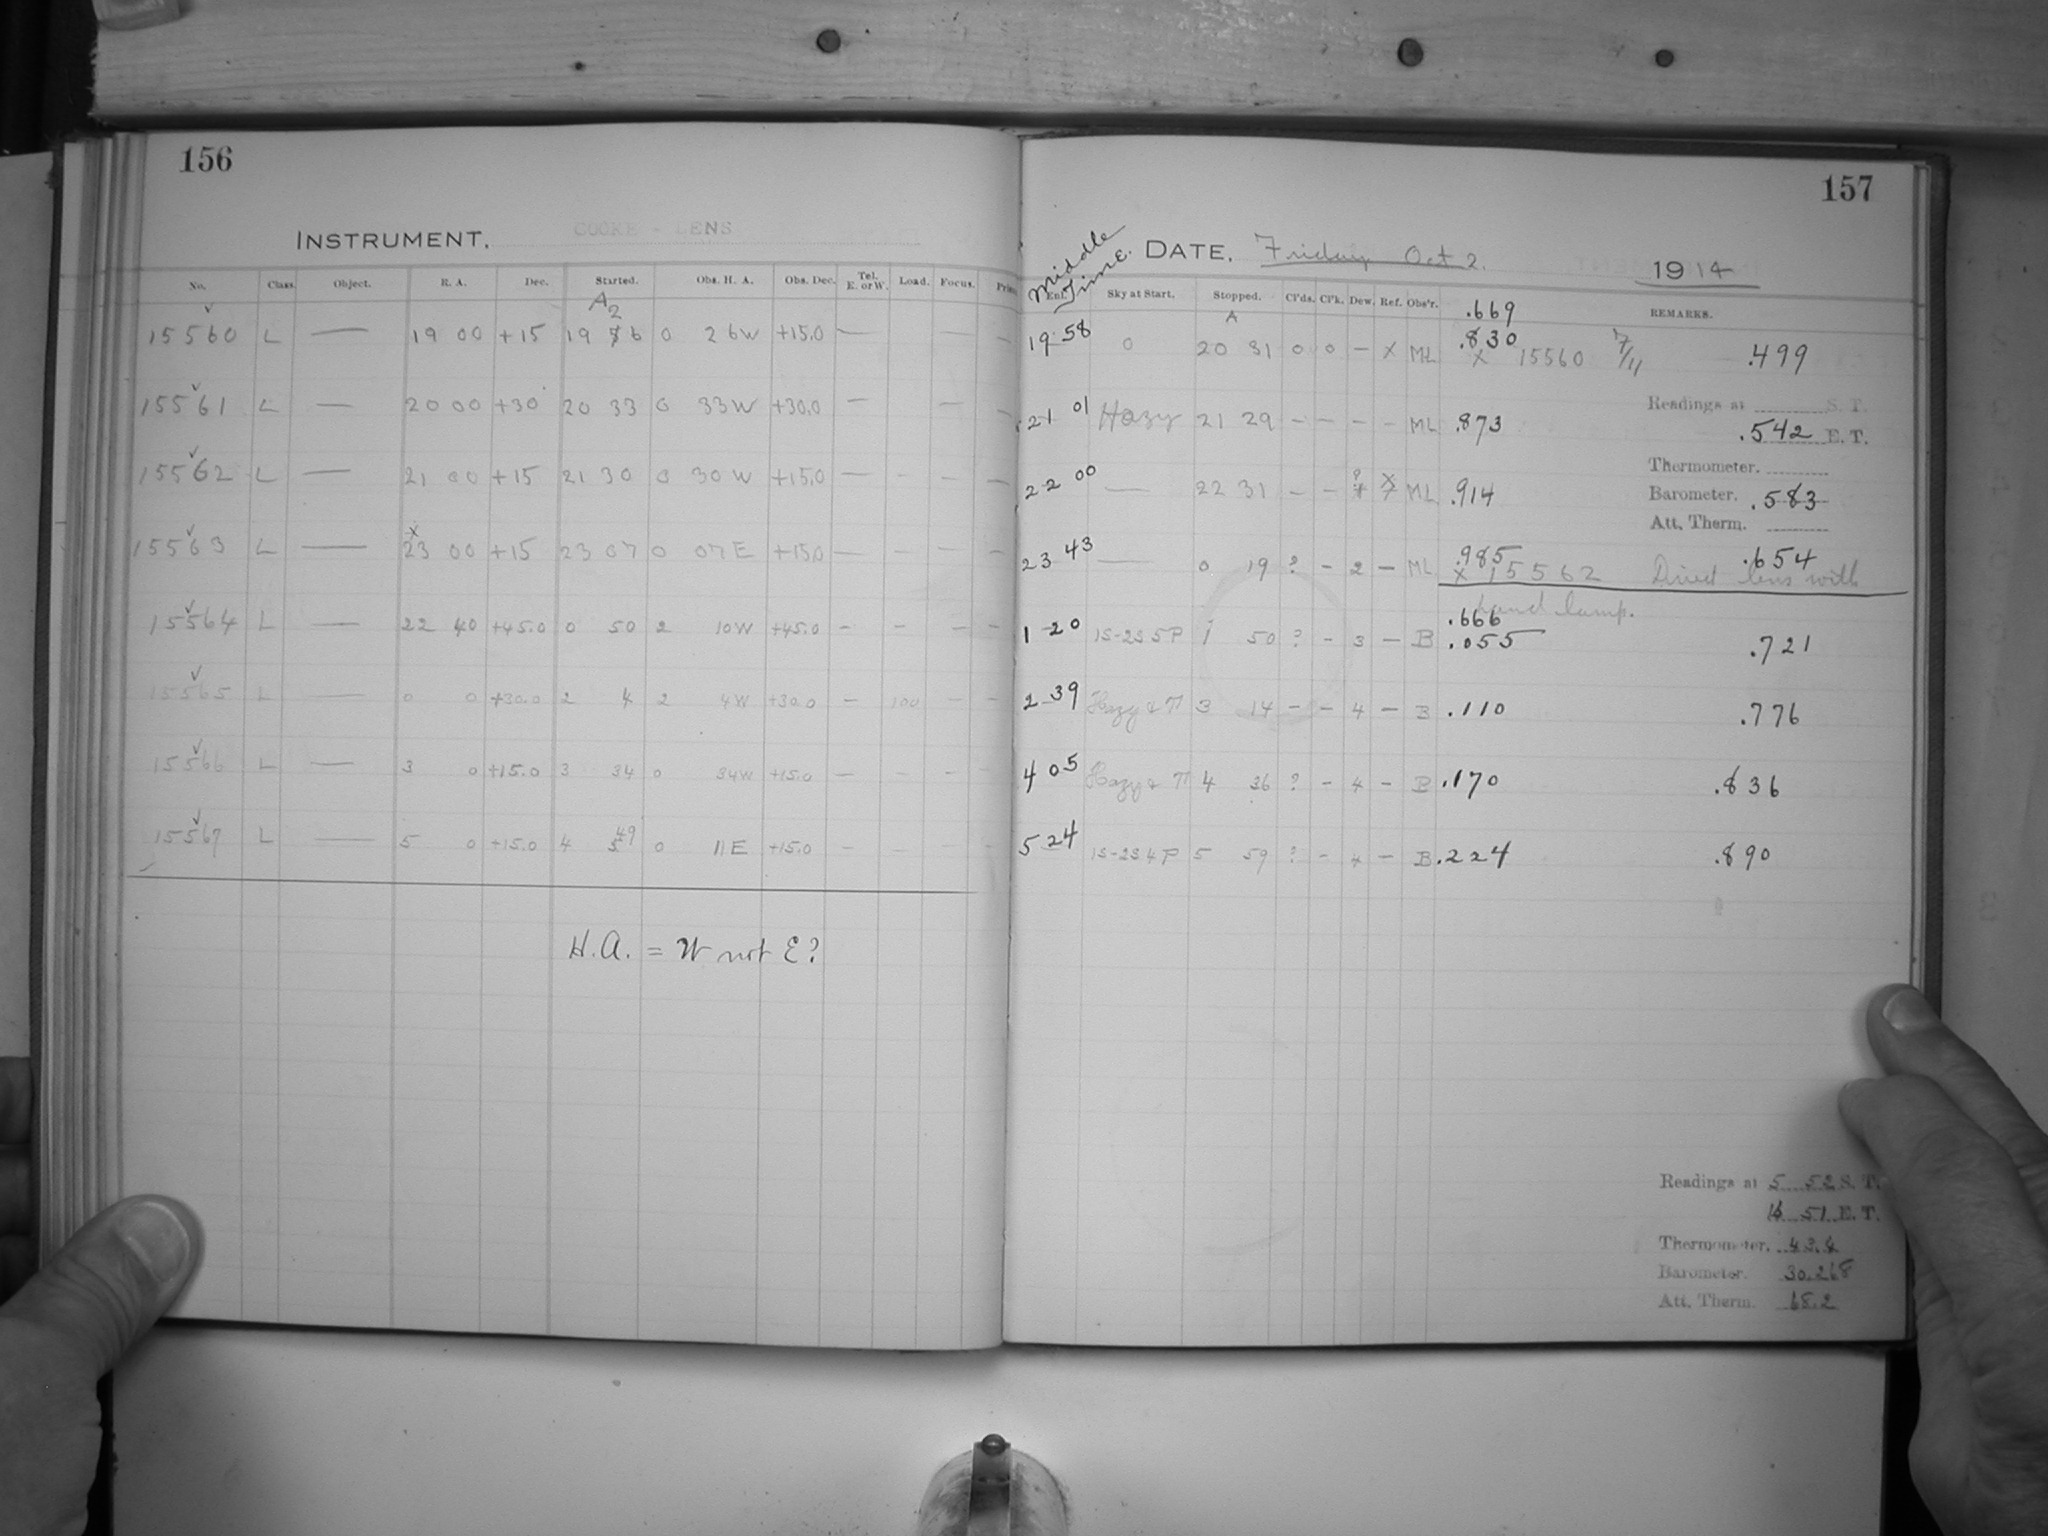 156
INSTRUMENT. COOKE - LENS
No. Class. Object. R. A. Dec. Started. Obs. H. A. Obs. Dec. Tel. E. or W. Load. Focus.
A 2
15560 L — 19 00 +15 19 56 0 26W +15.0 — —
15561 L — 20 00 +30 20 33 0 33W +30.0 — - - —
15562 L — 21 00 +15 21 30 0 30W +15.0 — - - —
x
15563 L — 23 00 +15 23 07 0 07E +15.0 — - - —
15564 L — 22 40 +45.0 0 50 2 10W +45.0 - - - -
15565 L — 0 0 +30.0 2 4 2 4W +30.0 - 100 - -
15566 L — 3 0 +15.0 3 34 0 34W +15.0 - - - -
49
15567 L — 5 0 +15.0 4 5 0 11E +15.0 - - -
H.A. = W not E?
157
Middle Time. DATE. Friday Oct 2. 1914
Sky at Start. Stopped. Cl'ds. Cl'k. Dew. Ref. Obs'r. REMARKS.
.669
A
19 58 0 20 31 0 0 - X ML .830 .499
X 15560 7/11
Readings at S. T.
21 01 Hazy 21 29 - - - - ML .873 .542 E. T.
Thermometer.
22 00 — 22 31 - - ? X ML .914 Barometer. .583
Att. Therm.
23 43 — 0 19 ? - 2 - ML .985 .654
X 15562 Dried lens with
hand lamp.
.666
1 20 1S-2S 5P 1 50 ? - 3 - B .055 .721
2 39 Hazy & π 3 14 - - 4 - B .110 .776
4 05 Hazy & π 4 36 ? - 4 - B .170 .836
5 24 1S-2S 4P 5 59 ? - 4 - B .224 .890
Readings at 5 52 S. T.
16 51 E. T.
Thermometer. 43.4
Barometer. 30.268
Att. Therm. 68.2